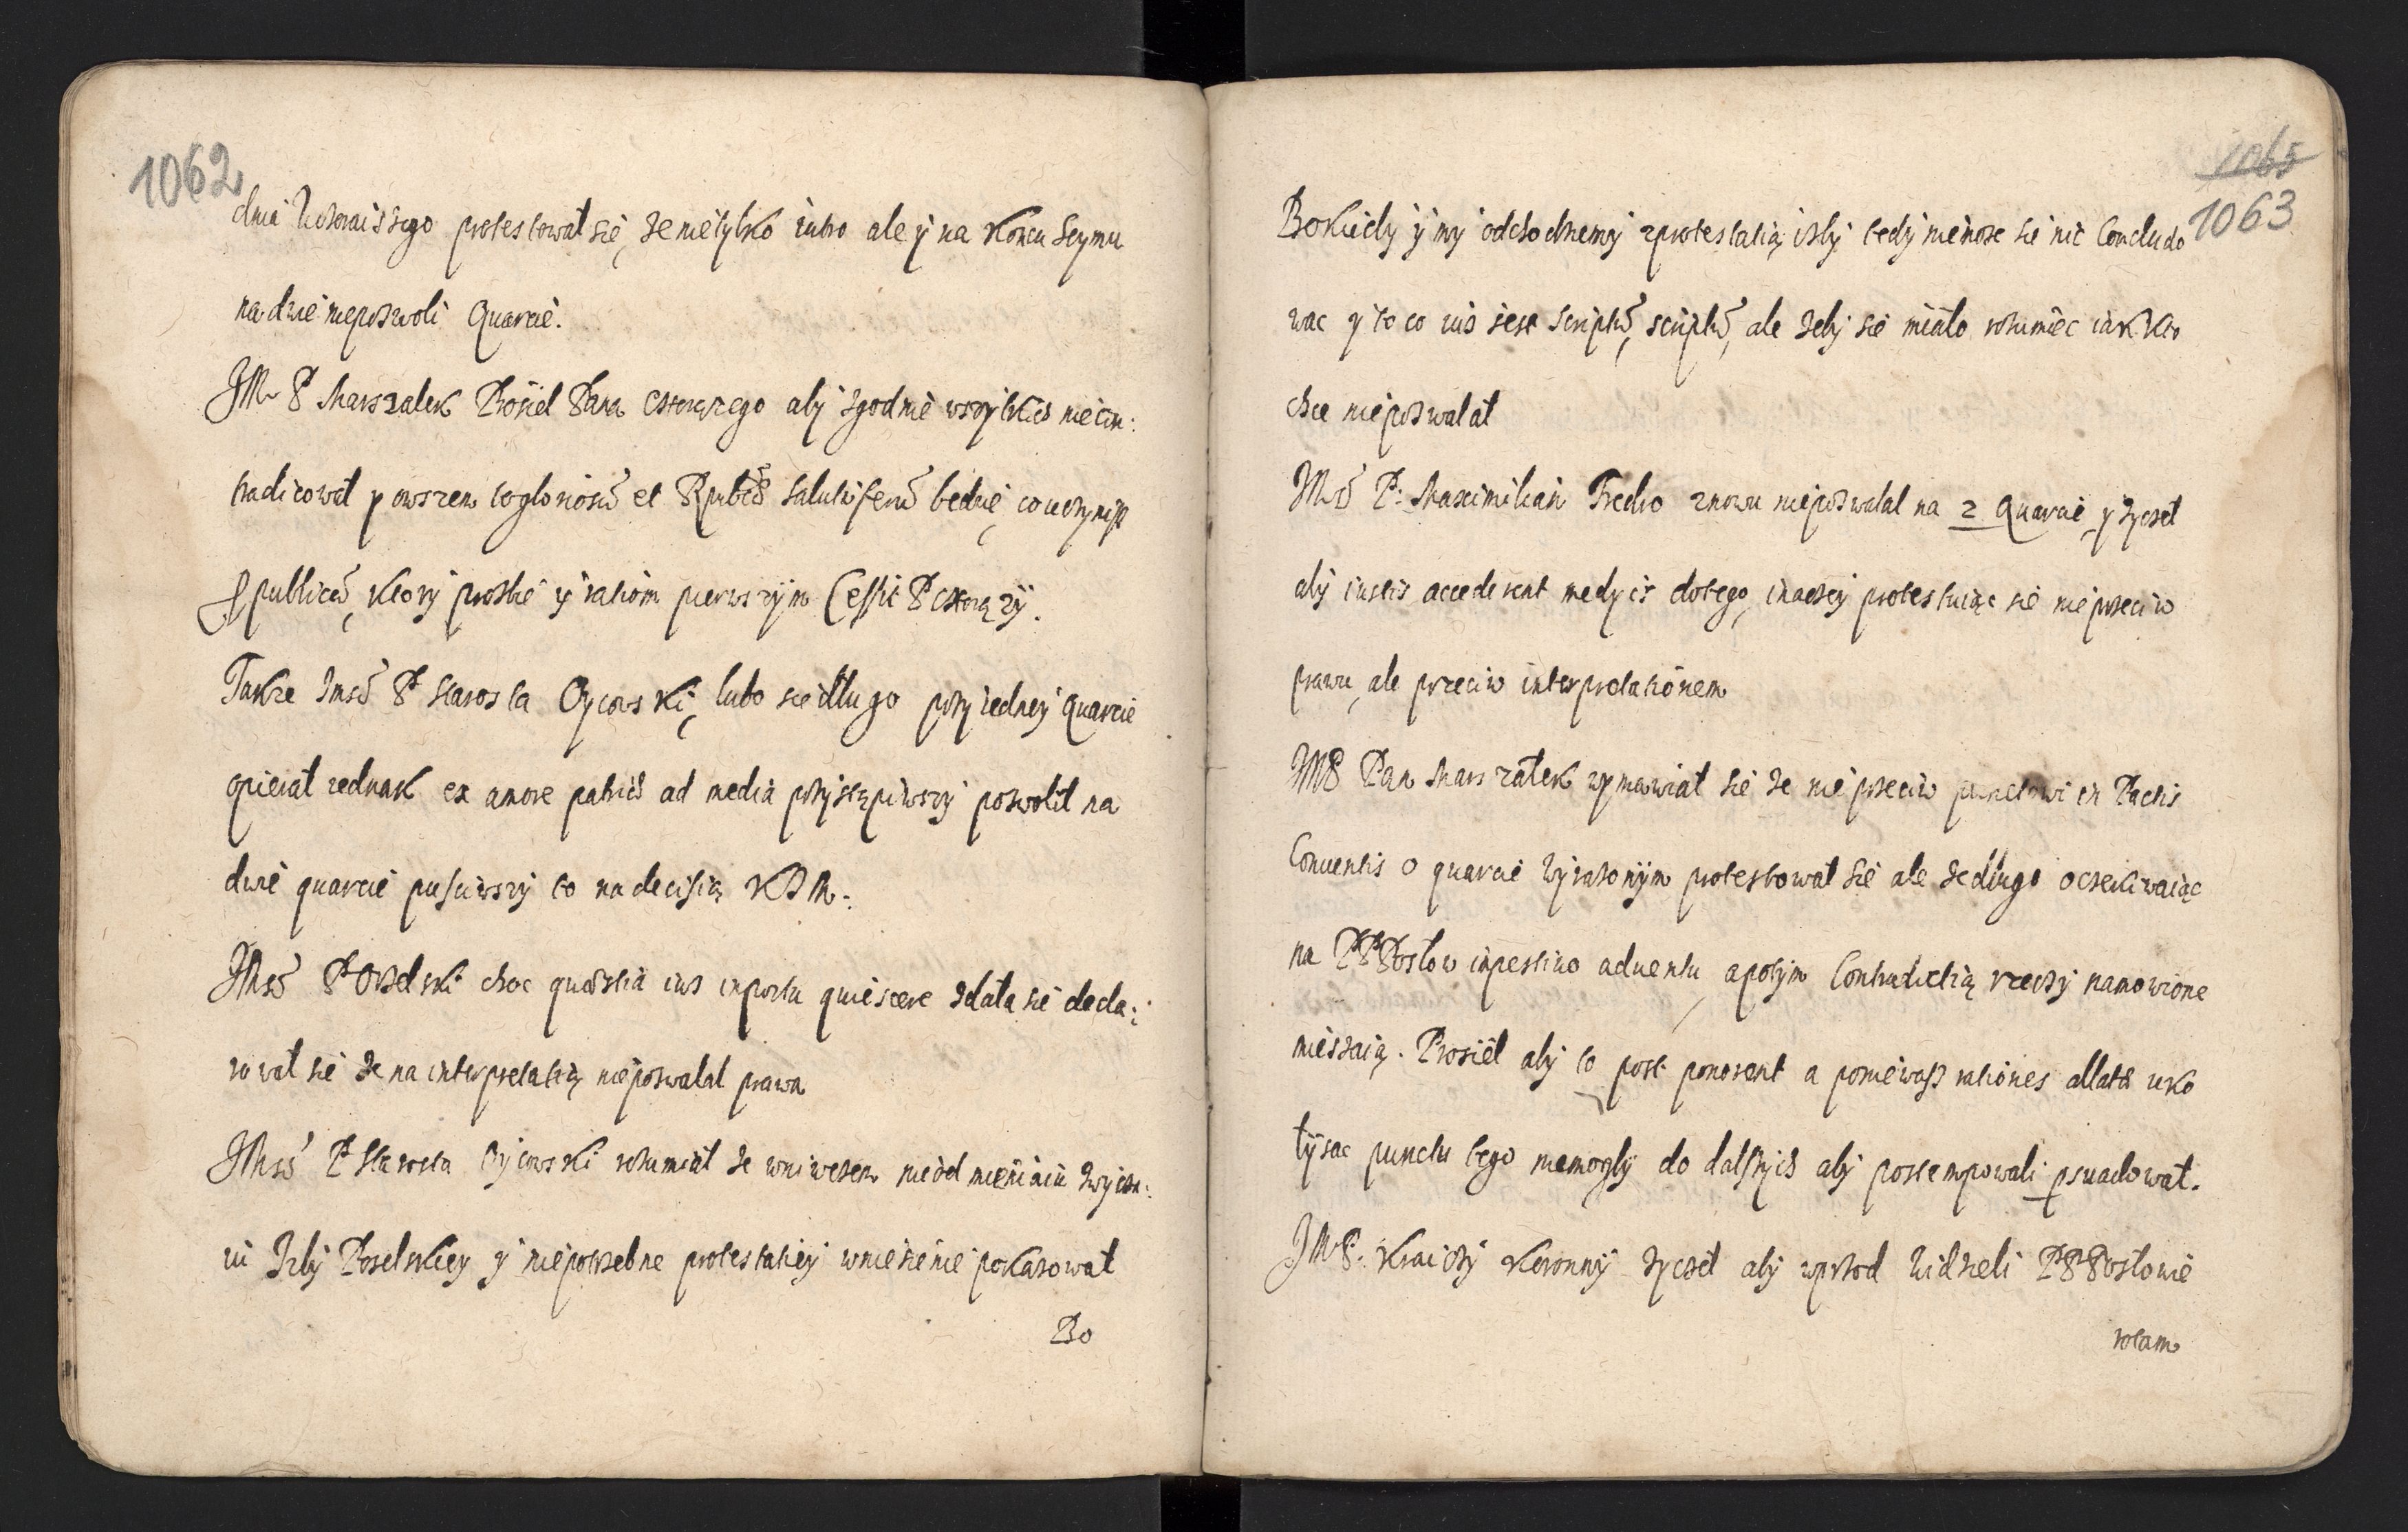 1062
dnia wczoraiszego protestował się, ze nietylko iutro ale y na koncu Seymu
na dwie niepozwoli Quarcie.
JM P Marszałek Prosieł Pana Chorążego aby zgodnie wszytkich nie con:
tradicował y owszem to gloriosū et Rpublicæ salutiferū będzie, co uczynisz
publicū, ktory prozbie y racjom pierwszym Cessit P Chorąży.
Takze Jmść P Starosta Oycowski, lubo się długo przy iedney quarcie
opierał iednak ex amore patriæ ad media przystąpiwszy pozwolił na
dwie quarcie pusciwszy to na decisią KJM:
JMść P Orzelski choc quæstia ius in portu quiescere zdała się decla:
rował się ze na interpretatią niepozwalał prawa
JMść P Starosta Oycowski rozumiał ze wniwczem nieodmieniaiu zwycza:
iu Izby Poselskiey y niepotrzebne protestatiey wniesienie pokazował
Bo
1065
1063
Bo kiedy y my odchodziemy zprotestatią izby tedy niemoze się nic Concludo
wac y to co iuż iest scriptū, scriptū, ale zeby się miało rozumiec iak kto
chce niepozwalał
JMść P: Maximilian Fredro znowu niepozwalał na 2 Quarcie, y zyczeł
aby iustis accederent medijs dotego, inaczey protestuiąc się nieprzeciw
prawu, ale przeciw interpretationem
JMP Pan Marszałek wymawiał się ze nie przeciw punctowi in Pactis
Conventis o quarcie wyrazonym protestował się ale ze długo oczekiwaiąc
na PPPosłow inpestivo adventu, a potym Contradictią rzeczy namowione
mieszaią. Prosieł aby to post ponerent a poniewasz rationes allatæ uko
łysac punctu tego niemogły do dalszych aby postempowali psuadował.
JMP: Kraiczy Koronny zyczeł aby wprzod widzieli PPPosłowie
rotam